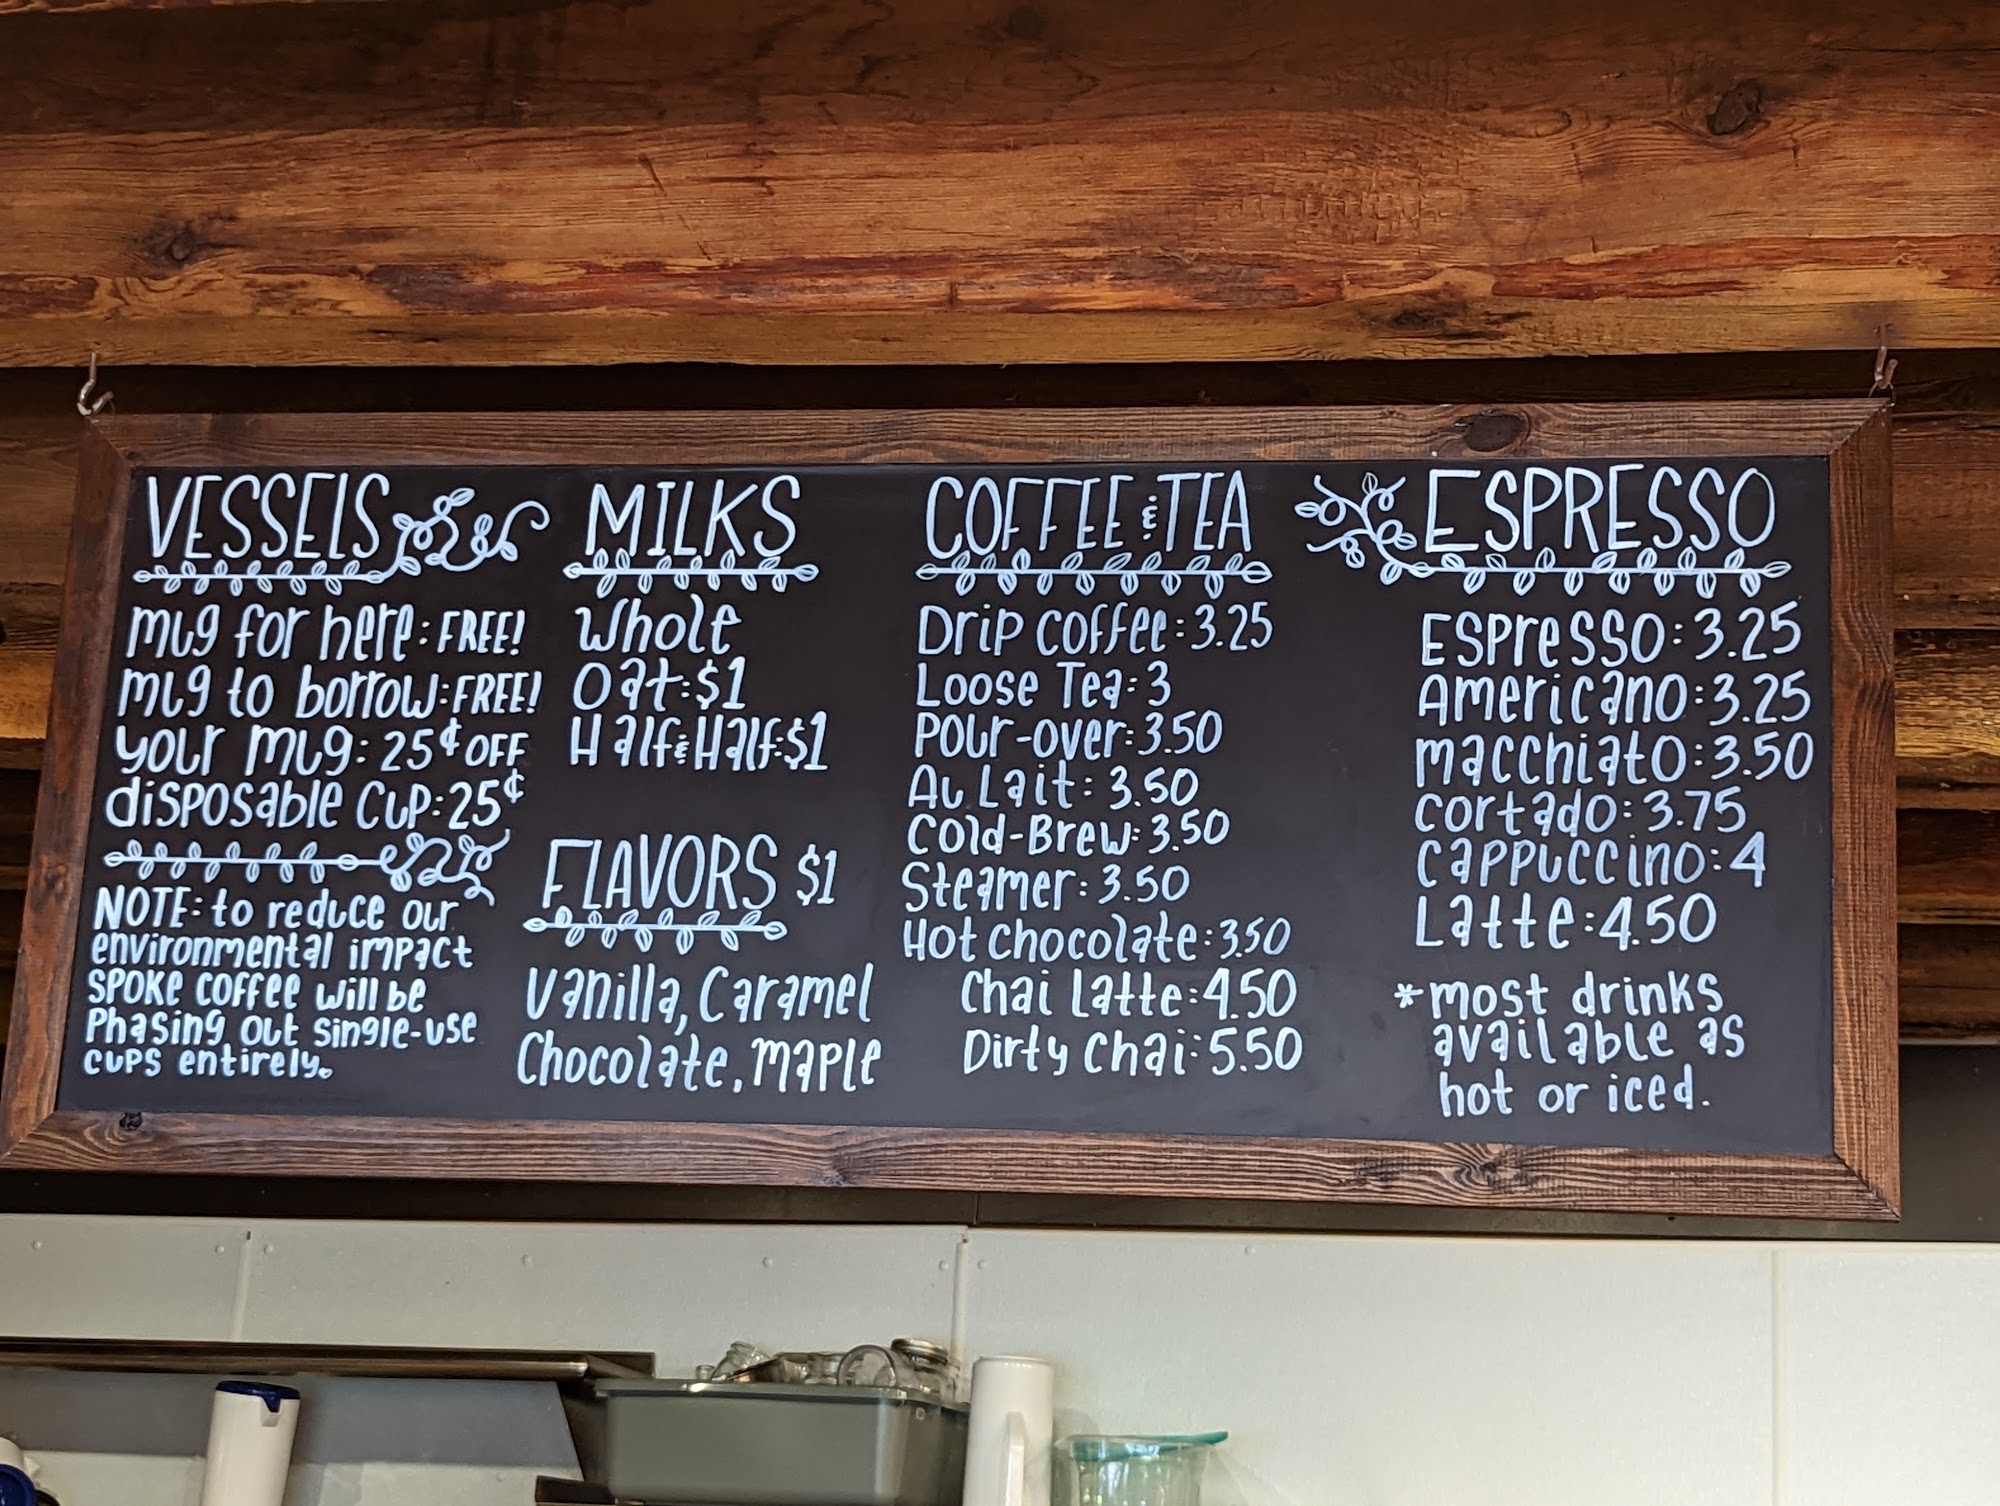 VESSELS
mug for here: FREE!
mug to borrow: FREE!
your mug: 25¢ OFF
disposable cup: 25¢
NOTE: to reduce our
environmental impact
SPOKE COFFEE will be
Phasing out single-use
cups entirely.
MILKS
Whole
Oat: $1
Half & Half: $1
FLAVORS $1
Vanilla, Caramel
Chocolate, Maple
COFFEE & TEA
Drip Coffee: 3.25
Loose Tea: 3
Pour-over: 3.50
Au Lait: 3.50
Cold-Brew: 3.50
Steamer: 3.50
Hot Chocolate: 3.50
Chai Latte: 4.50
Dirty Chai: 5.50
ESPRESSO
Espresso: 3.25
Americano: 3.25
macchiato: 3.50
cortado: 3.75
cappuccino: 4
Latte: 4.50
*most drinks
available as
hot or iced.